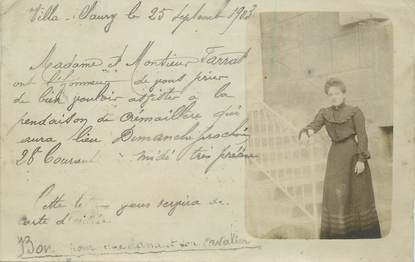 Villa-Saury le 25 septembre 1903
Madame et Monsieur Farrat
ont l'honneur de vous prier
de bien vouloir assister à la
pendaison de Crémaillère qui
aura lieu Dimanche prochain
28 Courant midi très précise
Cette vous servira de
carte d'entrée
Bon pour une dame et son cavalier